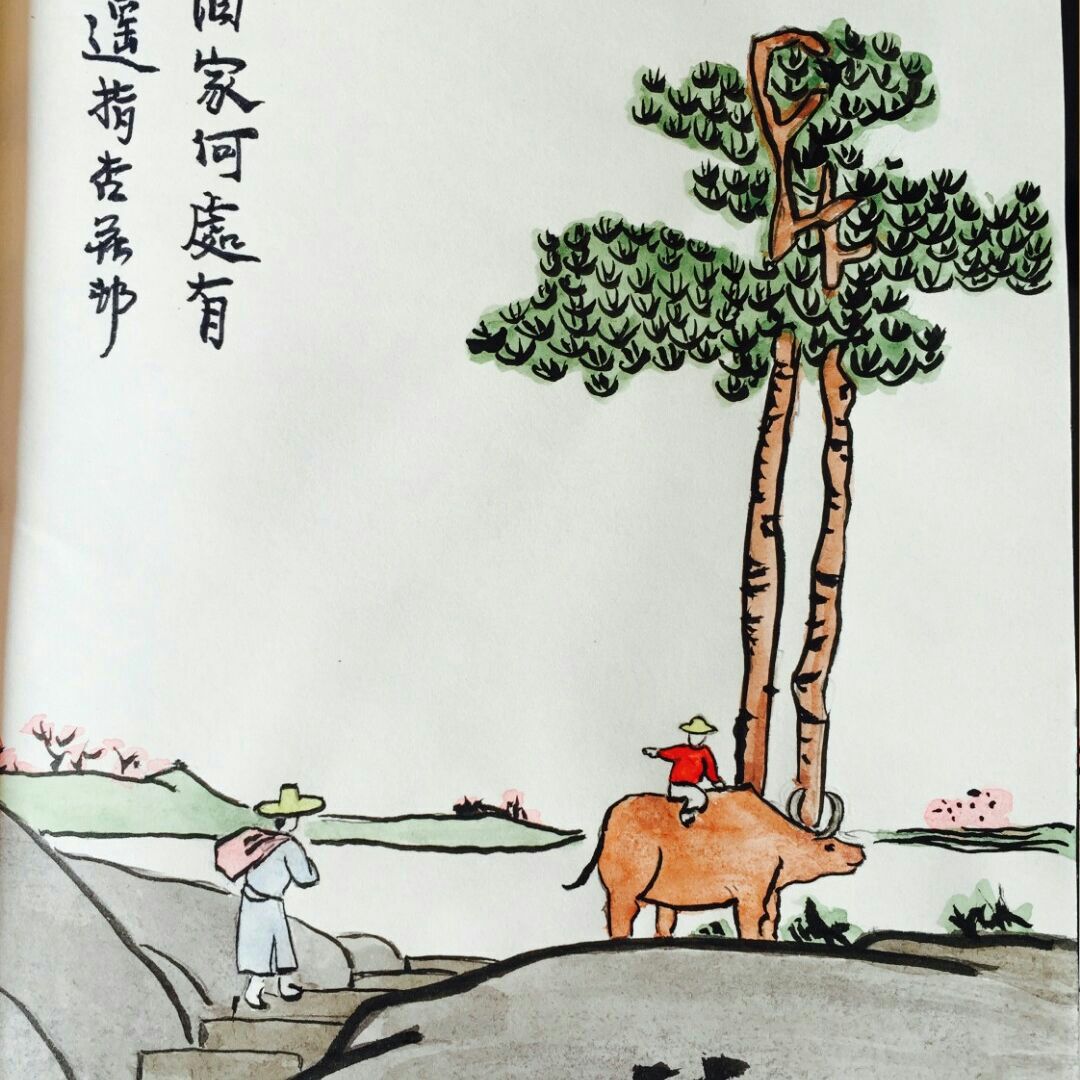 酒家何處有
遥指杏花邨